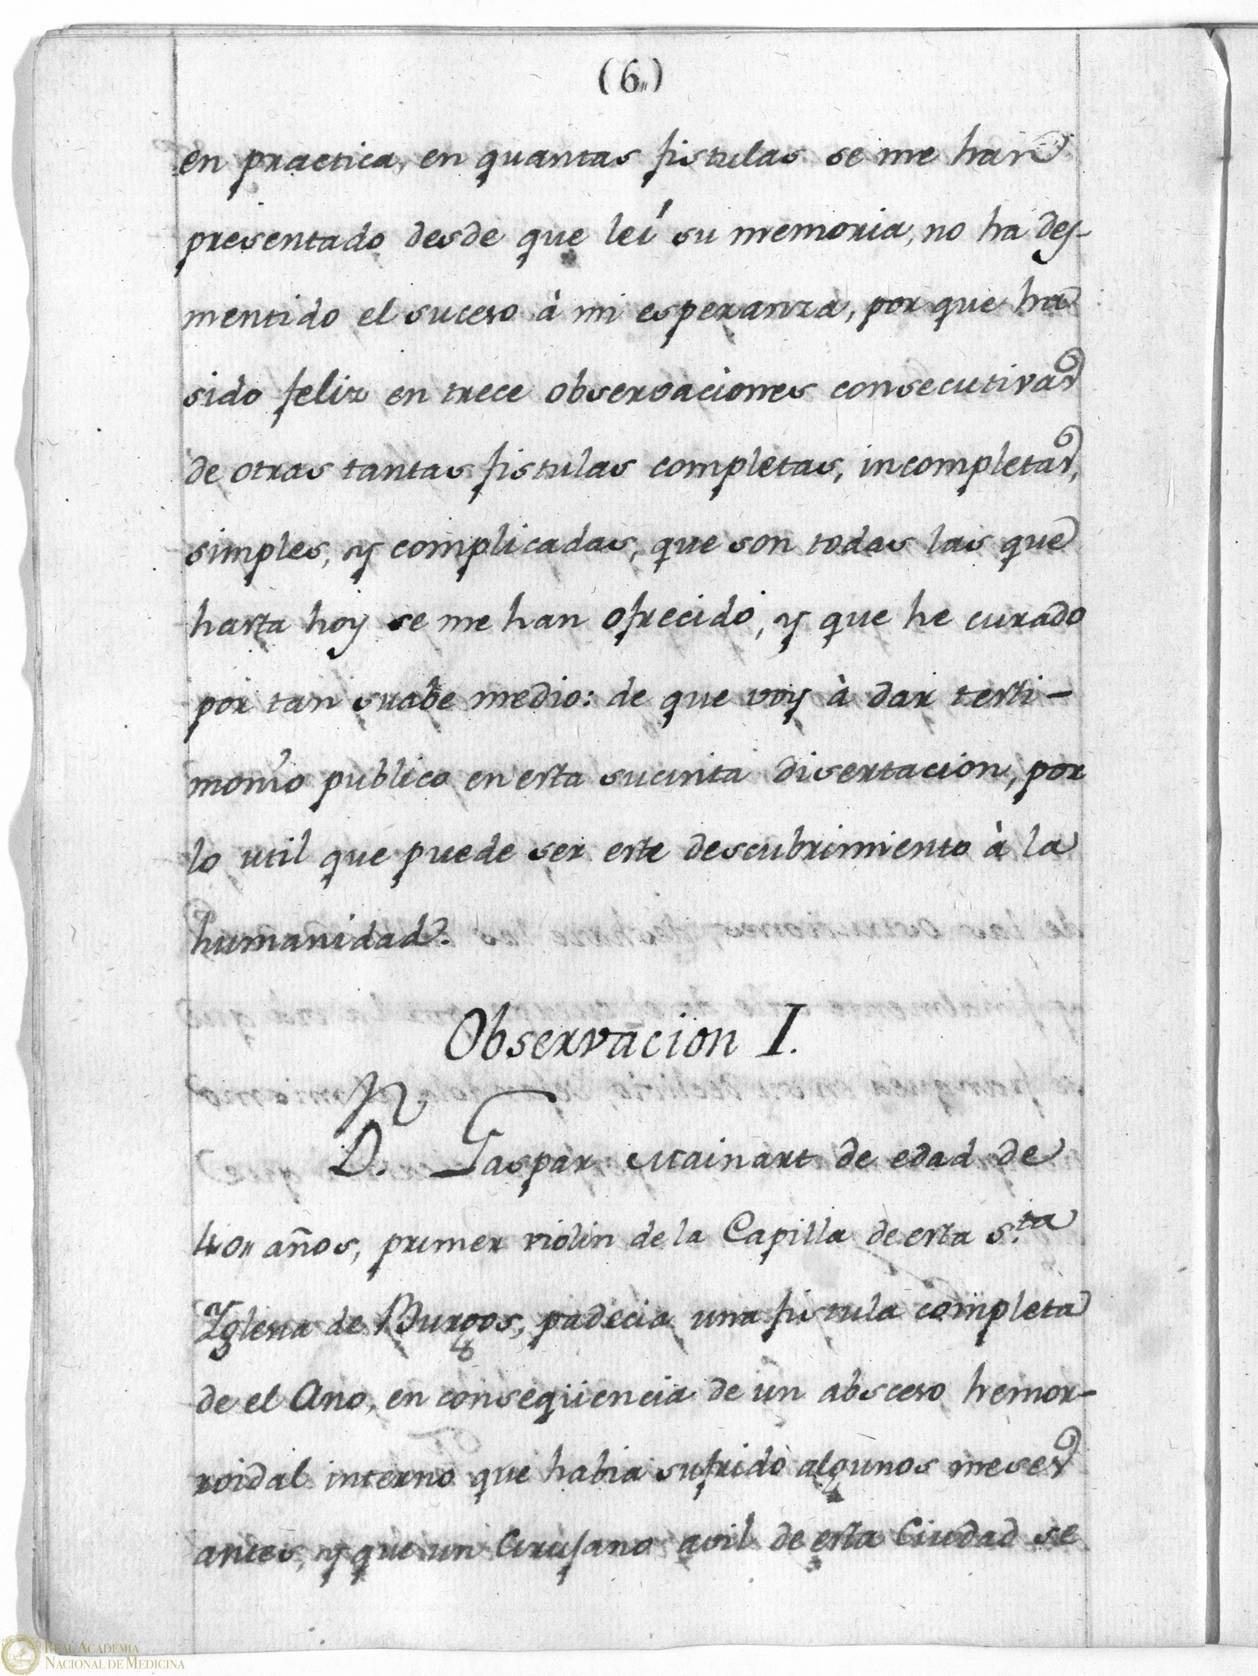 (6,,)
en practica, en quantas fistulas se me han
presentado desde que leí su memoria, no ha des-
mentido el suceso à mi esperanza, por que ha
sido feliz en trece observaciones consecutivas
de otras tantas fistulas completas, incompletas,
simples, y complicadas, que son todas las que
hasta hoy se me han ofrecido, y que he curado
por tan suabe medio: de que voy à dar testi-
monio publico en esta sucinta disertacion, por
lo util que puede ser este descubrimiento à la
humanidad.
Observacion I.
D. Gaspar Mainart de edad de
40,, años, primer violin de la Capilla de esta S.ta
Yglesia de Burgos, padecia una fistula completa
de el Ano, en conseqüencia de un absceso hemor-
roidal interno que habia sufrido algunos meses
antes, y que un Cirujano avil de esta Ciudad se
REAL ACADEMIA
NACIONAL DE MEDICINA